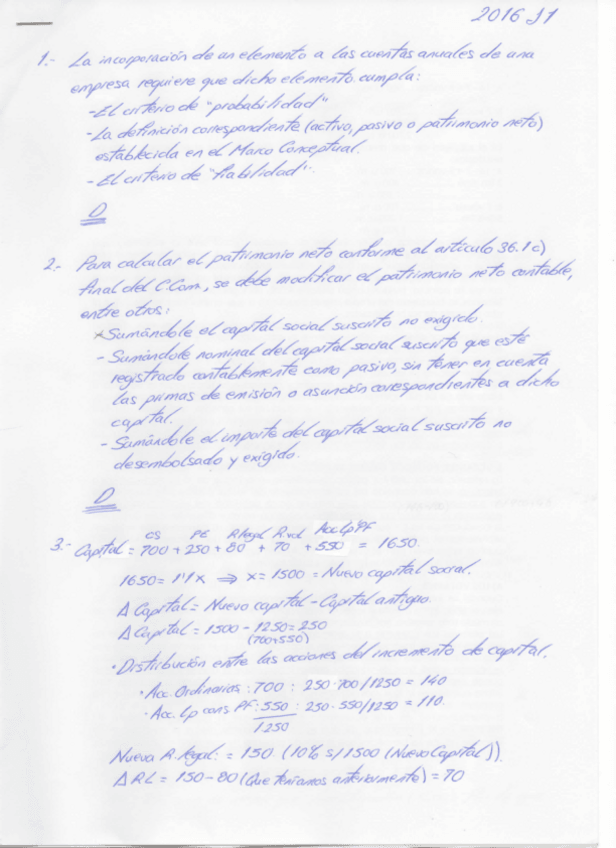 2016 J1
1.- La incorporación de un elemento a las cuentas anuales de una
empresa requiere que dicho elemento cumpla:
- El criterio de "probabilidad"
- La definición correspondiente (activo, pasivo o patrimonio neto)
establecida en el Marco Conceptual.
- El criterio de "fiabilidad".
D
2.- Para calcular el patrimonio neto conforme al artículo 36.1 c)
final del C.Com., se debe modificar el patrimonio neto contable,
entre otros:
* Sumándole el capital social suscrito no exigido.
- Sumándole nominal del capital social suscrito que esté
registrado contablemente como pasivo, sin tener en cuenta
las primas de emisión o asunción correspondientes a dicho
capital.
- Sumándole el importe del capital social suscrito no
desembolsado y exigido.
D
CS PE R.legal R.vol Acc Lp PF
3.- Capital = 700 + 250 + 80 + 70 + 550 = 1650
1650 = 1'1x ⇒ x = 1500 = Nuevo capital social.
Δ Capital = Nuevo capital - Capital antiguo
Δ Capital = 1500 - 1250 = 250
(700+550)
· Distribución entre las acciones del incremento de capital.
· Acc. Ordinarias : 700 : 250·700/1250 = 140
· Acc. Lp cons PF: 550 : 250·550/1250 = 110
1250
Nueva R.legal: = 150 (10% s/1500 (Nuevo Capital)).
Δ RL = 150 - 80 (Que teníamos anteriormente) = 70